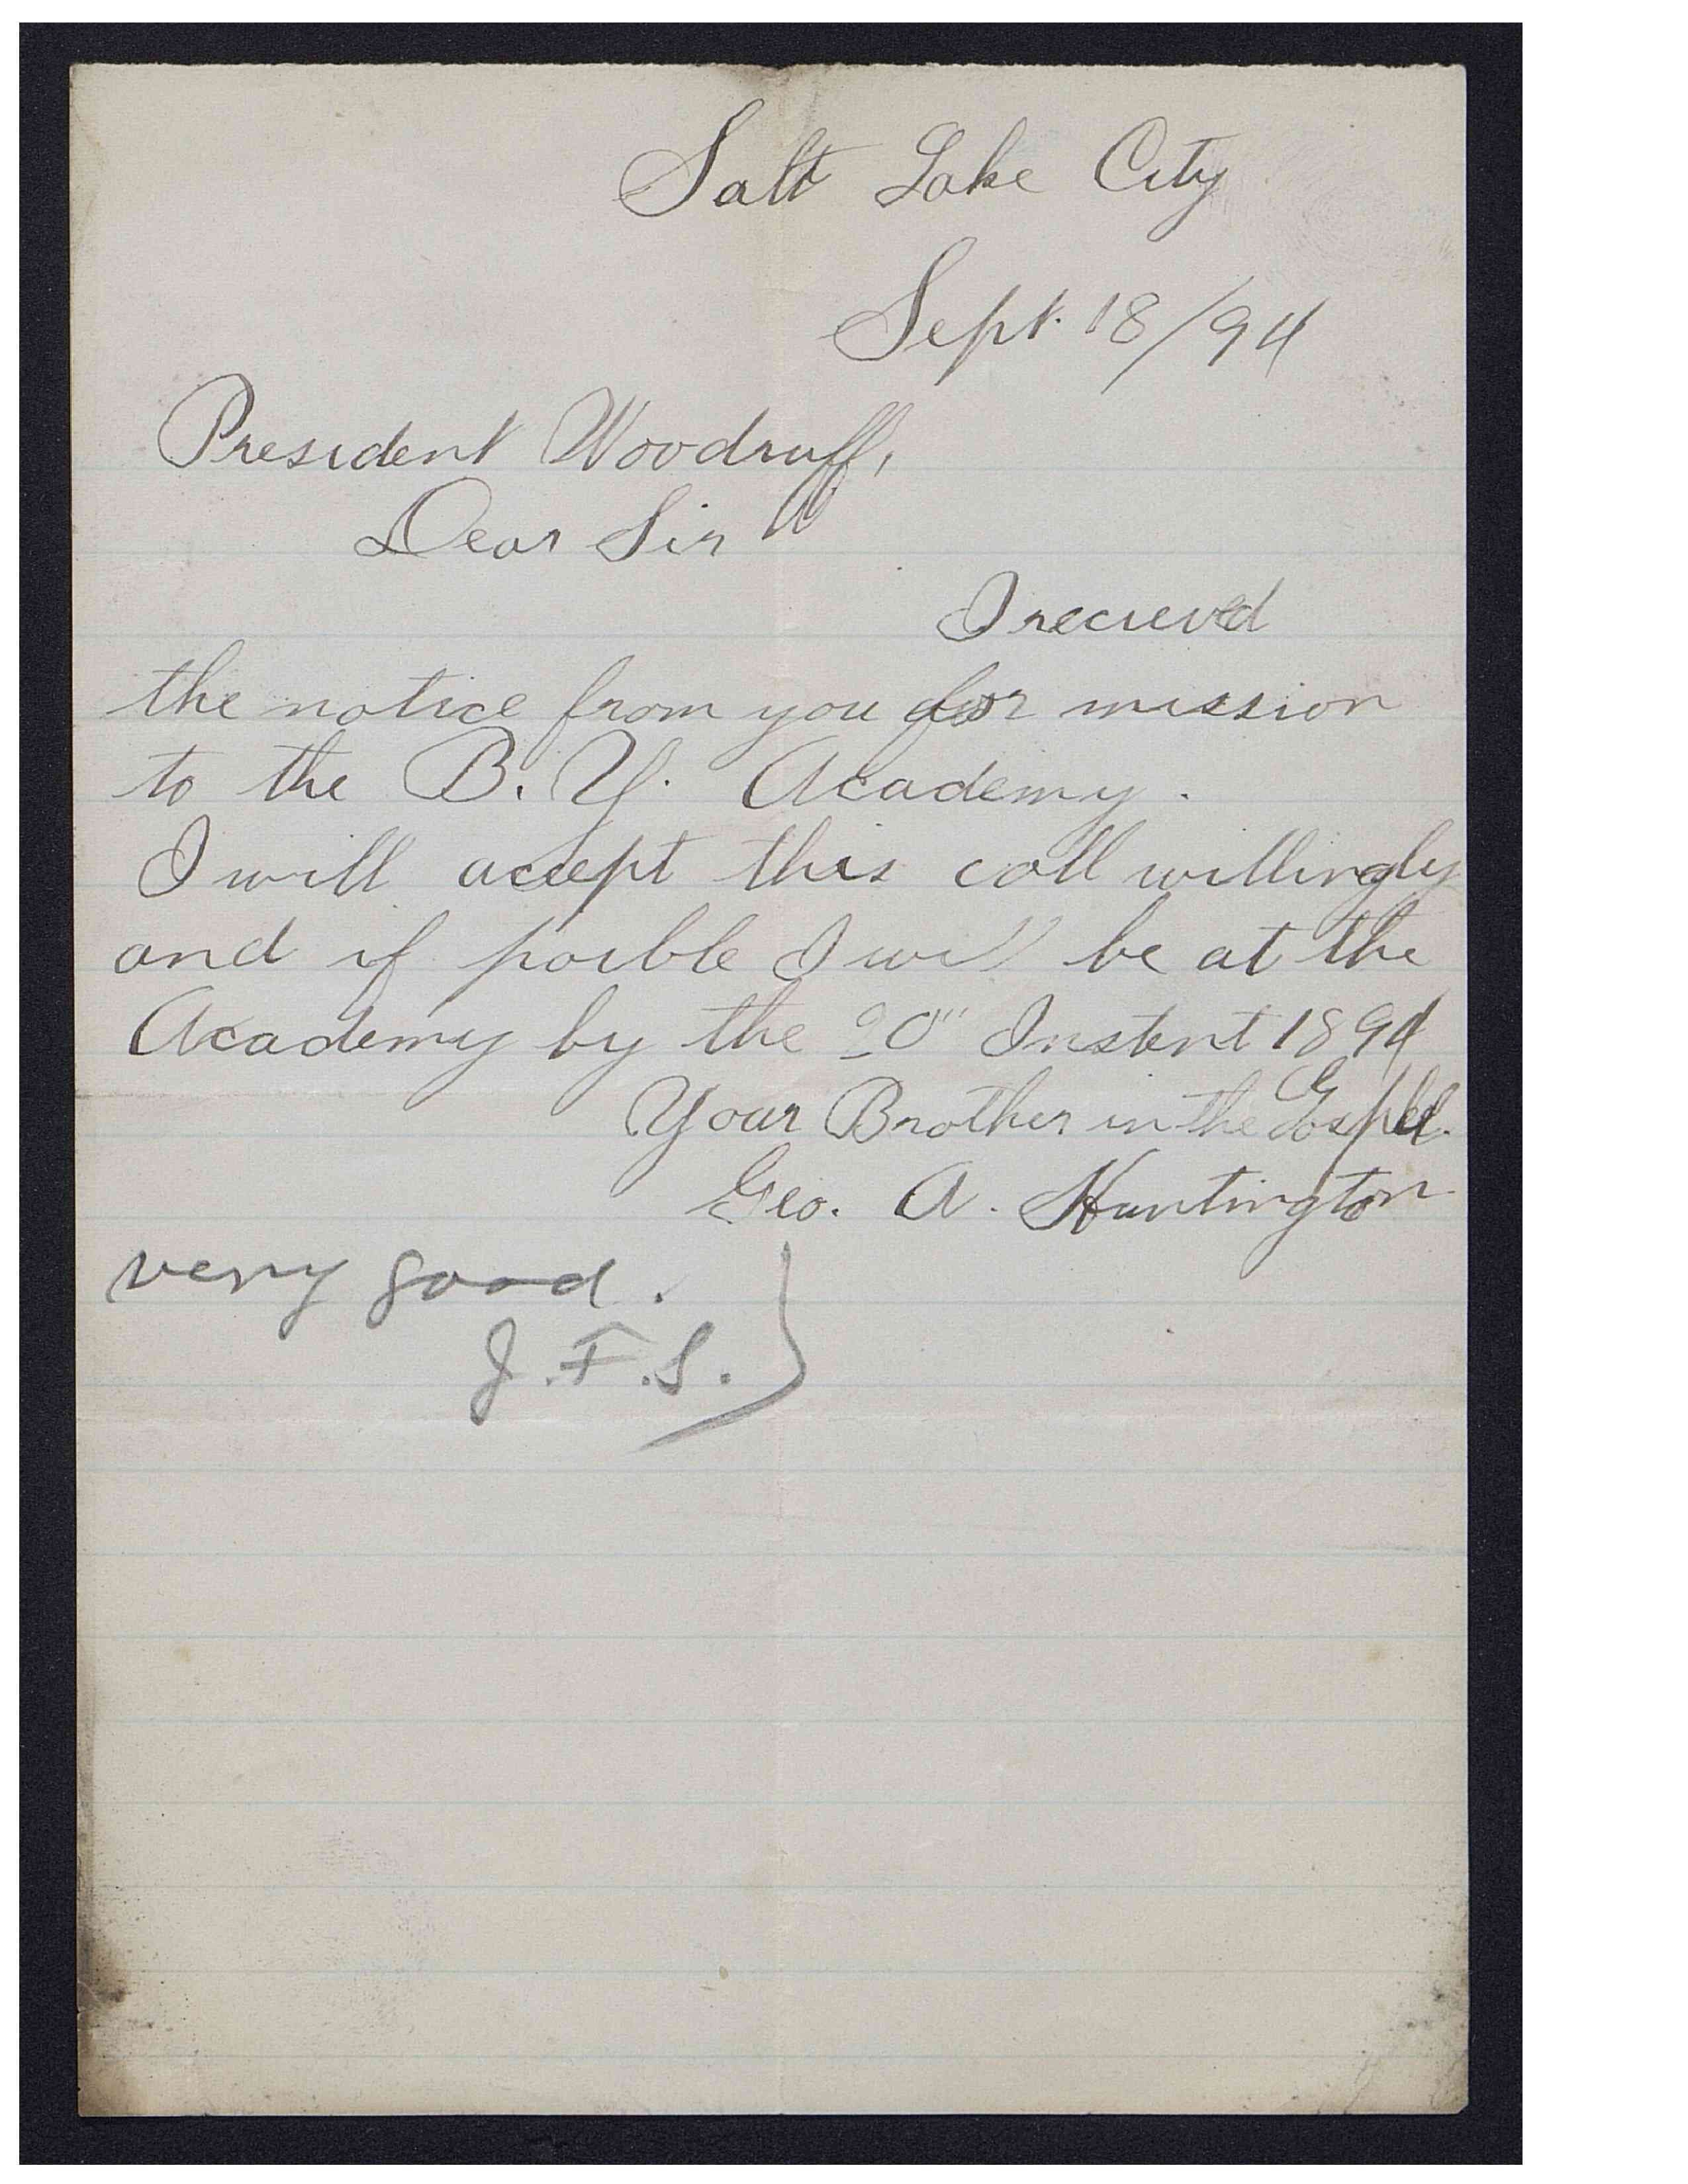 Salt Lake City
Sept. 18/94
President Woodruff,
Dear Sir
I recieved
the notice from you for mission
to the B. Y. Academy.
I will accept this call willingly
and if posible I will be at the
Academy by the 20" Instent 1894
Your Brother in the Gospel.
Geo. A. Huntington
very good.
J.F.S.